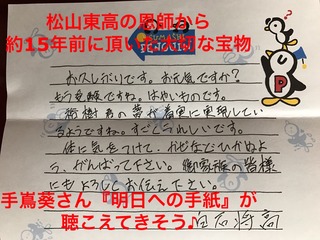 松山東高の恩師から
約15年前に頂いた大切な宝物
PENGUIN
P
お久しぶりです。お元気ですか?
もう受験ですね。はやいものです。
着実に実現してい
るようですね。すごくうれしいです。
体に気をつけて、かぜなどひかぬよ
う、がんばって下さい。御家族の皆様
にもよろしくお伝え下さい。
手嶌葵さん『明日への手紙』が
聴こえてきそう♪
白石将高